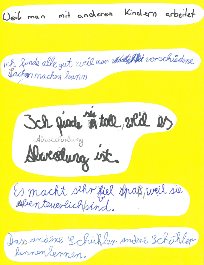 Weil man mit anderen Kindern arbeitet
ich finde alles gut weil man verschiedene
Sachen machen kann
Ich finde sie toll, weil es
Abwechslung
Abwechslung ist.
Es macht sehr viel Spaß, weil sie
abenteuerlich sind.
Dass andere Schüler andere Schüler
kennenlernen.